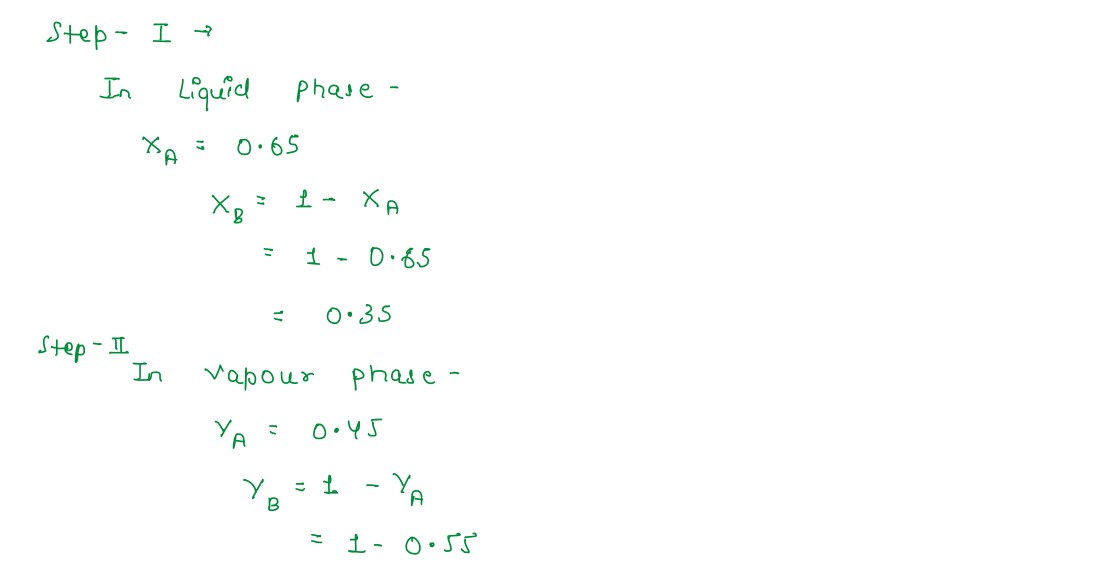 Step - I →
In Liquid phase -
X_A = 0.65
X_B = 1 - X_A
= 1 - 0.65
= 0.35
Step - II
In vapour phase -
Y_A = 0.45
Y_B = 1 - Y_A
= 1 - 0.55